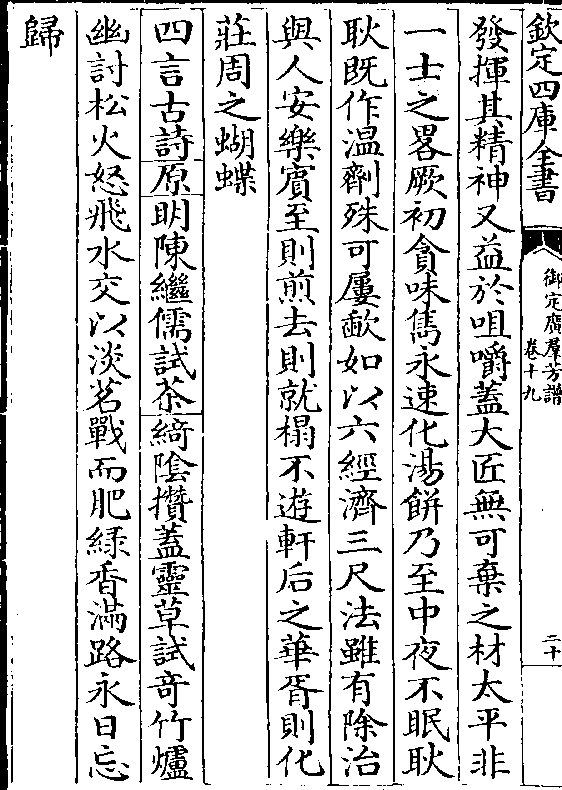 欽定四庫全書
御定廣羣芳譜
卷十九
二十
發揮其精神又益於咀嚼蓋大匠無可棄之材太平非
一士之畧厥初貪味雋永速化湯餅乃至中夜不眠耿
耿既作溫劑殊可屢歃如以六經濟三尺法雖有除治
與人安樂賔至則煎去則就榻不遊軒后之華胥則化
莊周之蝴蝶
四言古詩原明陳繼儒試茶綺隂攢蓋靈草試竒竹爐
幽討松火怒飛水交以淡茗戰而肥緑香滿路永日忘
歸